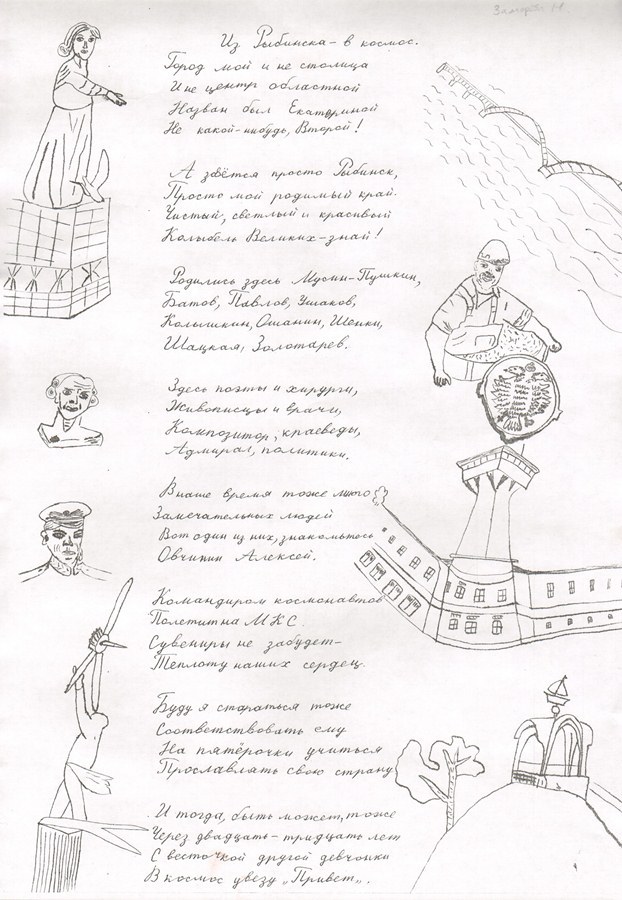 Из Рыбинска - в космос.
Город мой и не столица
И не центр областной
Назван был Екатериной
Не какой-нибудь, Второй!
А зовётся просто Рыбинск,
Просто мой родимый край.
Чистый, светлый и красивый
Колыбель Великих - знай!
Родились здесь Мусин-Пушкин,
Батов, Павлов, Ушаков,
Колышкин, Ошанин, Шенки,
Шацкая, Золотарев.
Здесь поэты и хирурги,
Живописцы и врачи,
Композитор, краеведы,
Адмирал, политики.
В наше время тоже много
Замечательных людей
Вот один из них, знакомьтесь
Овчинин Алексей.
Командиром космонавтов
Полетит на МКС.
Сувениры не забудет -
Теплоту наших сердец.
Буду я стараться тоже
Соответствовать ему
На пятёрочки учиться
Прославлять свою страну
И тогда, быть может, тоже
Через двадцать - тридцать лет
С весточкой другой девчонки
В космос увезу „Привет„.